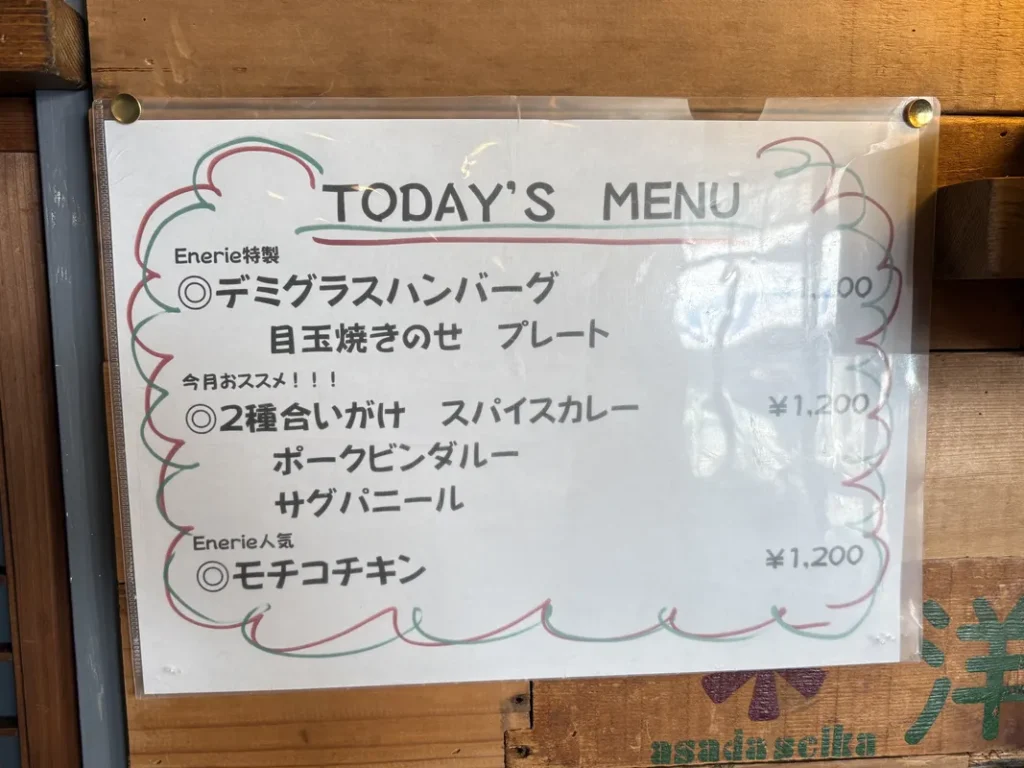 TODAY'S MENU
Enerie特製
◎デミグラスハンバーグ
目玉焼きのせ プレート
今月おススメ！！！
◎2種合いがけ スパイスカレー ¥1,200
ポークビンダルー
サグパニール
Enerie人気
◎モチコチキン ¥1,200
asadaseika
洋